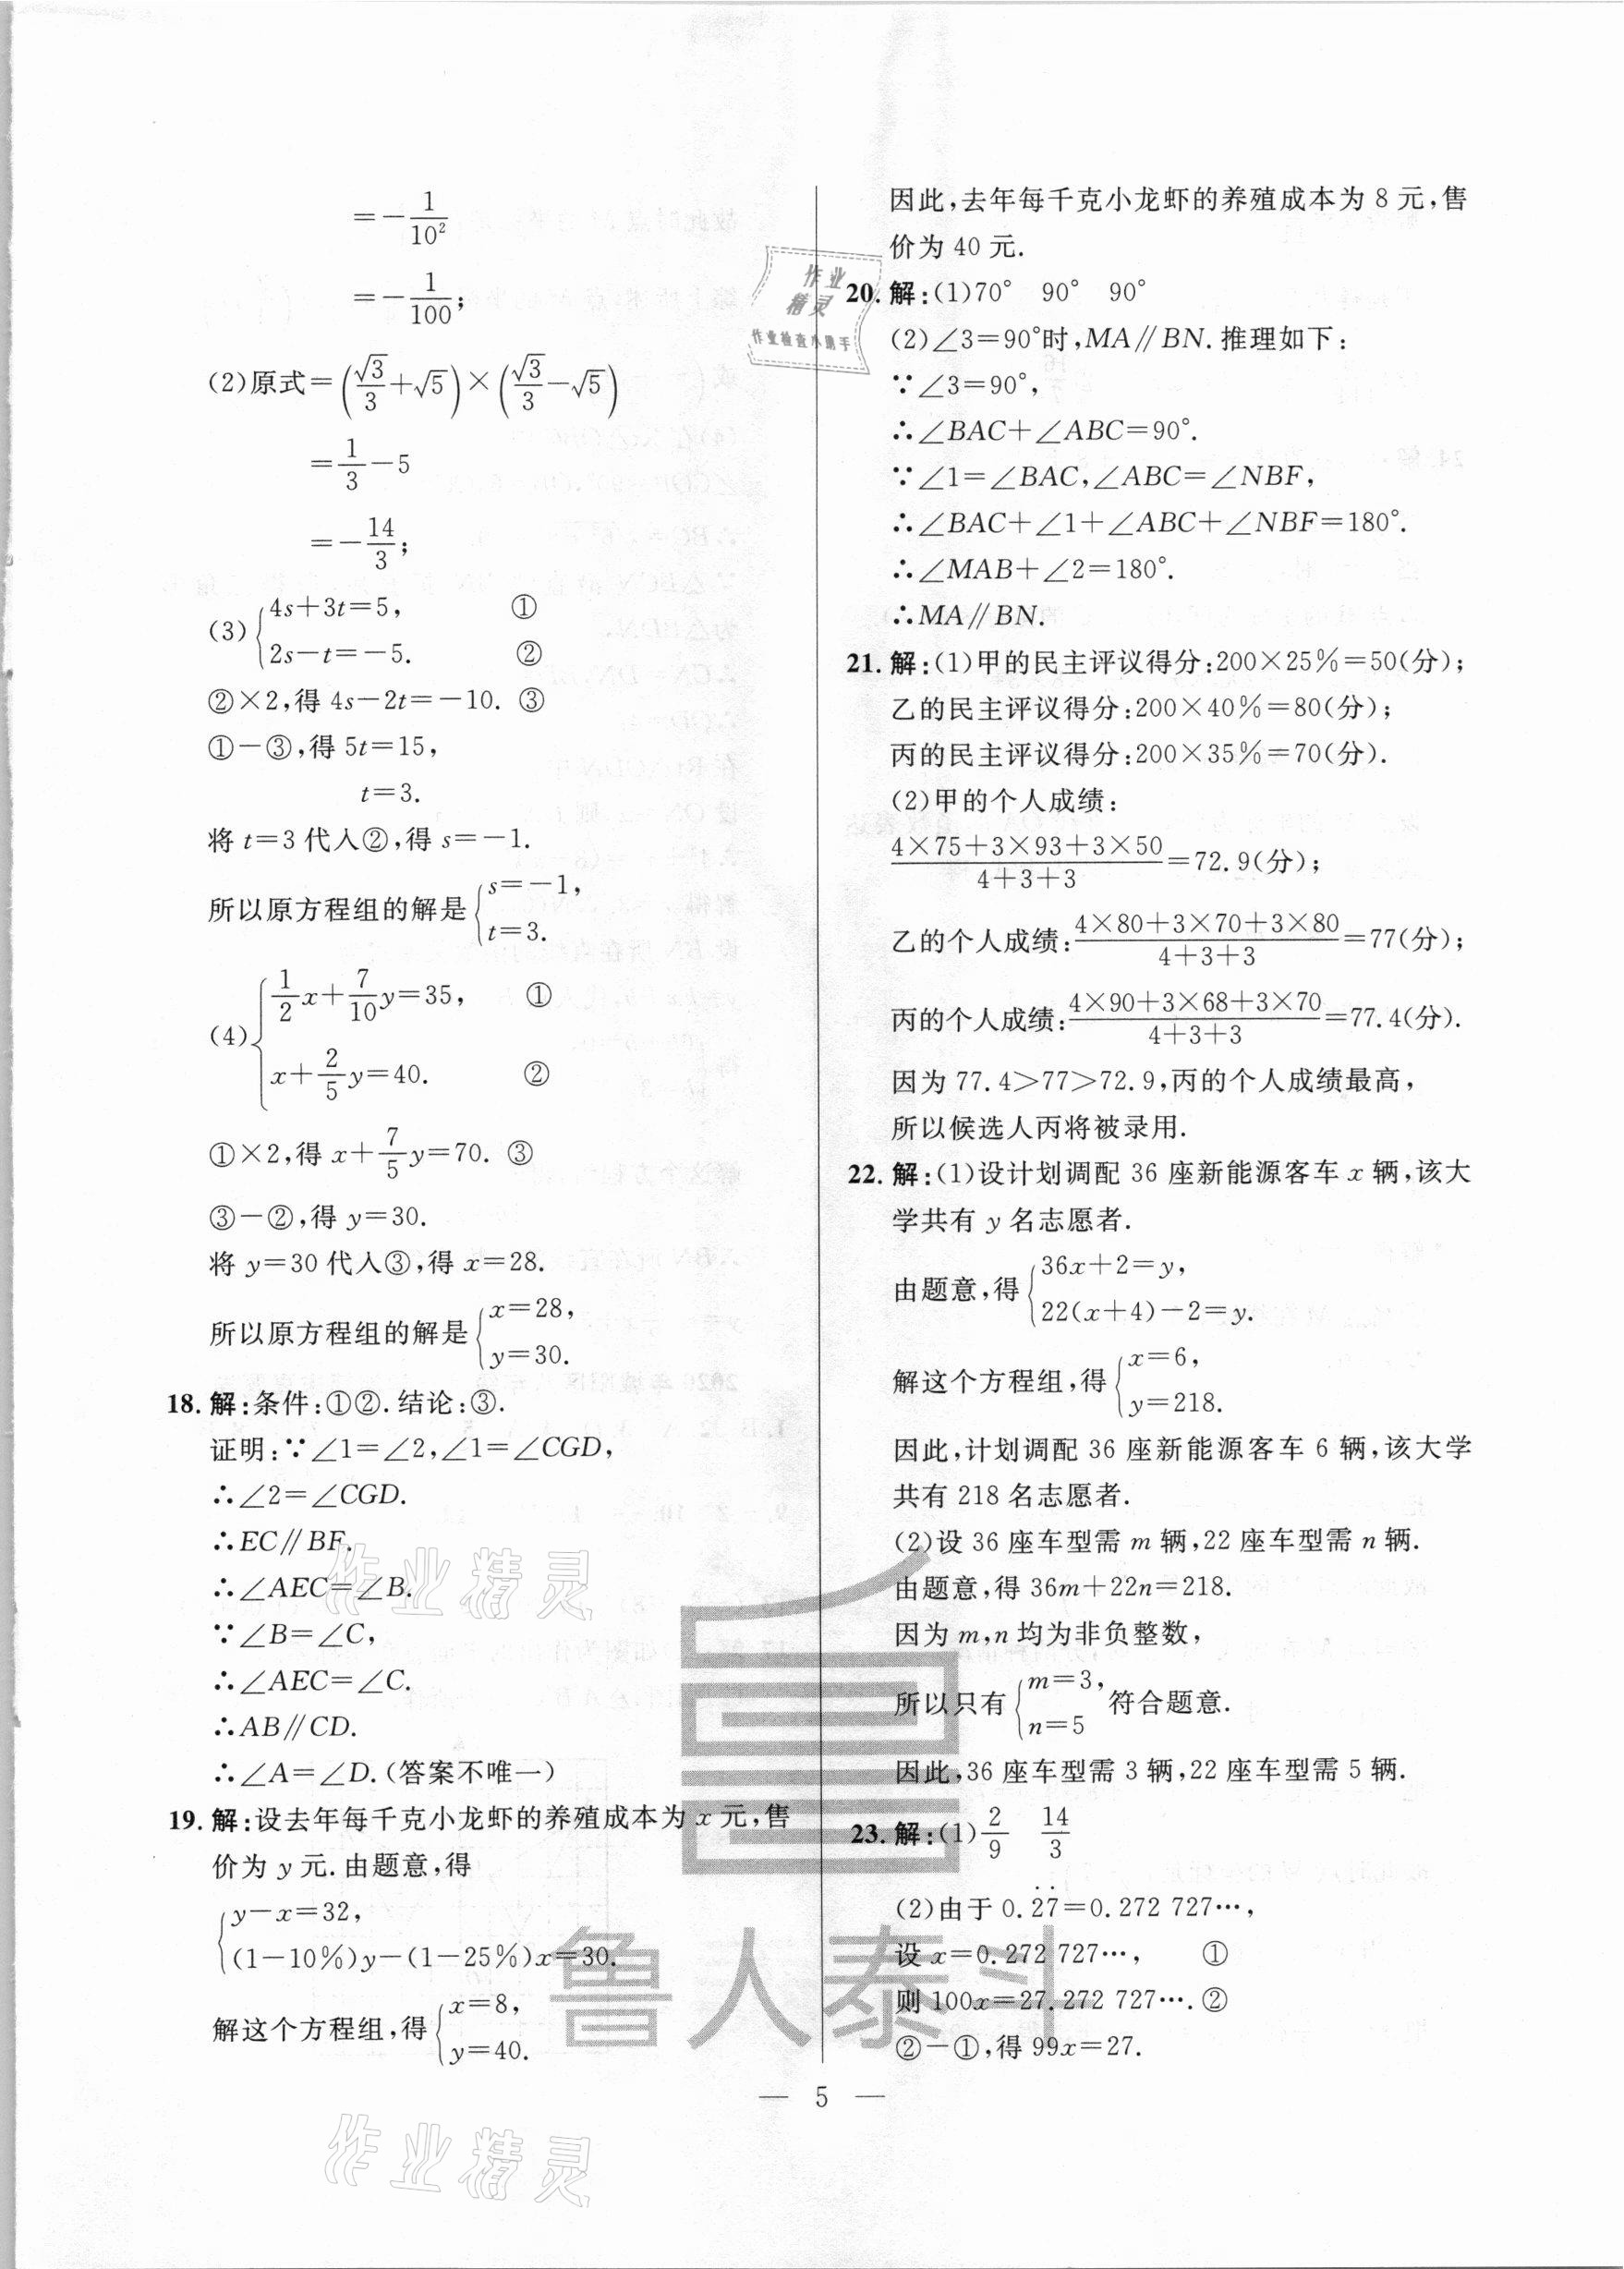 =-1/10²
=-1/100;
(2)原式=(√3/3+√5)×(√3/3-√5)
=1/3-5
=-14/3;
(3){4s+3t=5, ①
2s-t=-5. ②
②×2,得 4s-2t=-10. ③
①-③,得 5t=15,
t=3.
将 t=3 代入②,得 s=-1.
所以原方程组的解是{s=-1,
t=3.
(4){1/2x+7/10y=35, ①
x+2/5y=40. ②
①×2,得 x+7/5y=70. ③
③-②,得 y=30.
将 y=30 代入③,得 x=28.
所以原方程组的解是{x=28,
y=30.
18. 解:条件:①②. 结论:③.
证明:∵∠1=∠2,∠1=∠CGD,
∴∠2=∠CGD.
∴EC∥BF.
∴∠AEC=∠B.
∵∠B=∠C,
∴∠AEC=∠C.
∴AB∥CD.
∴∠A=∠D.(答案不唯一)
19. 解:设去年每千克小龙虾的养殖成本为 x 元,售
价为 y 元. 由题意,得
{y-x=32,
(1-10%)y-(1-25%)x=30.
解这个方程组,得{x=8,
y=40.
因此,去年每千克小龙虾的养殖成本为 8 元,售
价为 40 元.
20. 解:(1)70° 90° 90°
(2)∠3=90°时,MA∥BN. 推理如下:
∵∠3=90°,
∴∠BAC+∠ABC=90°.
∵∠1=∠BAC,∠ABC=∠NBF,
∴∠BAC+∠1+∠ABC+∠NBF=180°.
∴∠MAB+∠2=180°.
∴MA∥BN.
21. 解:(1)甲的民主评议得分:200×25%=50(分);
乙的民主评议得分:200×40%=80(分);
丙的民主评议得分:200×35%=70(分).
(2)甲的个人成绩:
(4×75+3×93+3×50)/(4+3+3)=72.9(分);
乙的个人成绩:(4×80+3×70+3×80)/(4+3+3)=77(分);
丙的个人成绩:(4×90+3×68+3×70)/(4+3+3)=77.4(分).
因为 77.4>77>72.9,丙的个人成绩最高,
所以候选人丙将被录用.
22. 解:(1)设计划调配 36 座新能源客车 x 辆,该大
学共有 y 名志愿者.
由题意,得{36x+2=y,
22(x+4)-2=y.
解这个方程组,得{x=6,
y=218.
因此,计划调配 36 座新能源客车 6 辆,该大学
共有 218 名志愿者.
(2)设 36 座车型需 m 辆,22 座车型需 n 辆.
由题意,得 36m+22n=218.
因为 m,n 均为非负整数,
所以只有{m=3,
n=5 符合题意.
因此,36 座车型需 3 辆,22 座车型需 5 辆.
23. 解:(1)2/9 14/3
(2)由于 0.2̇7̇=0.272 727…,
设 x=0.272 727…, ①
则 100x=27.272 727…. ②
②-①,得 99x=27.
— 5 —
作业
精灵
作业检查小助手
作业精灵
鲁人泰斗
作业精灵